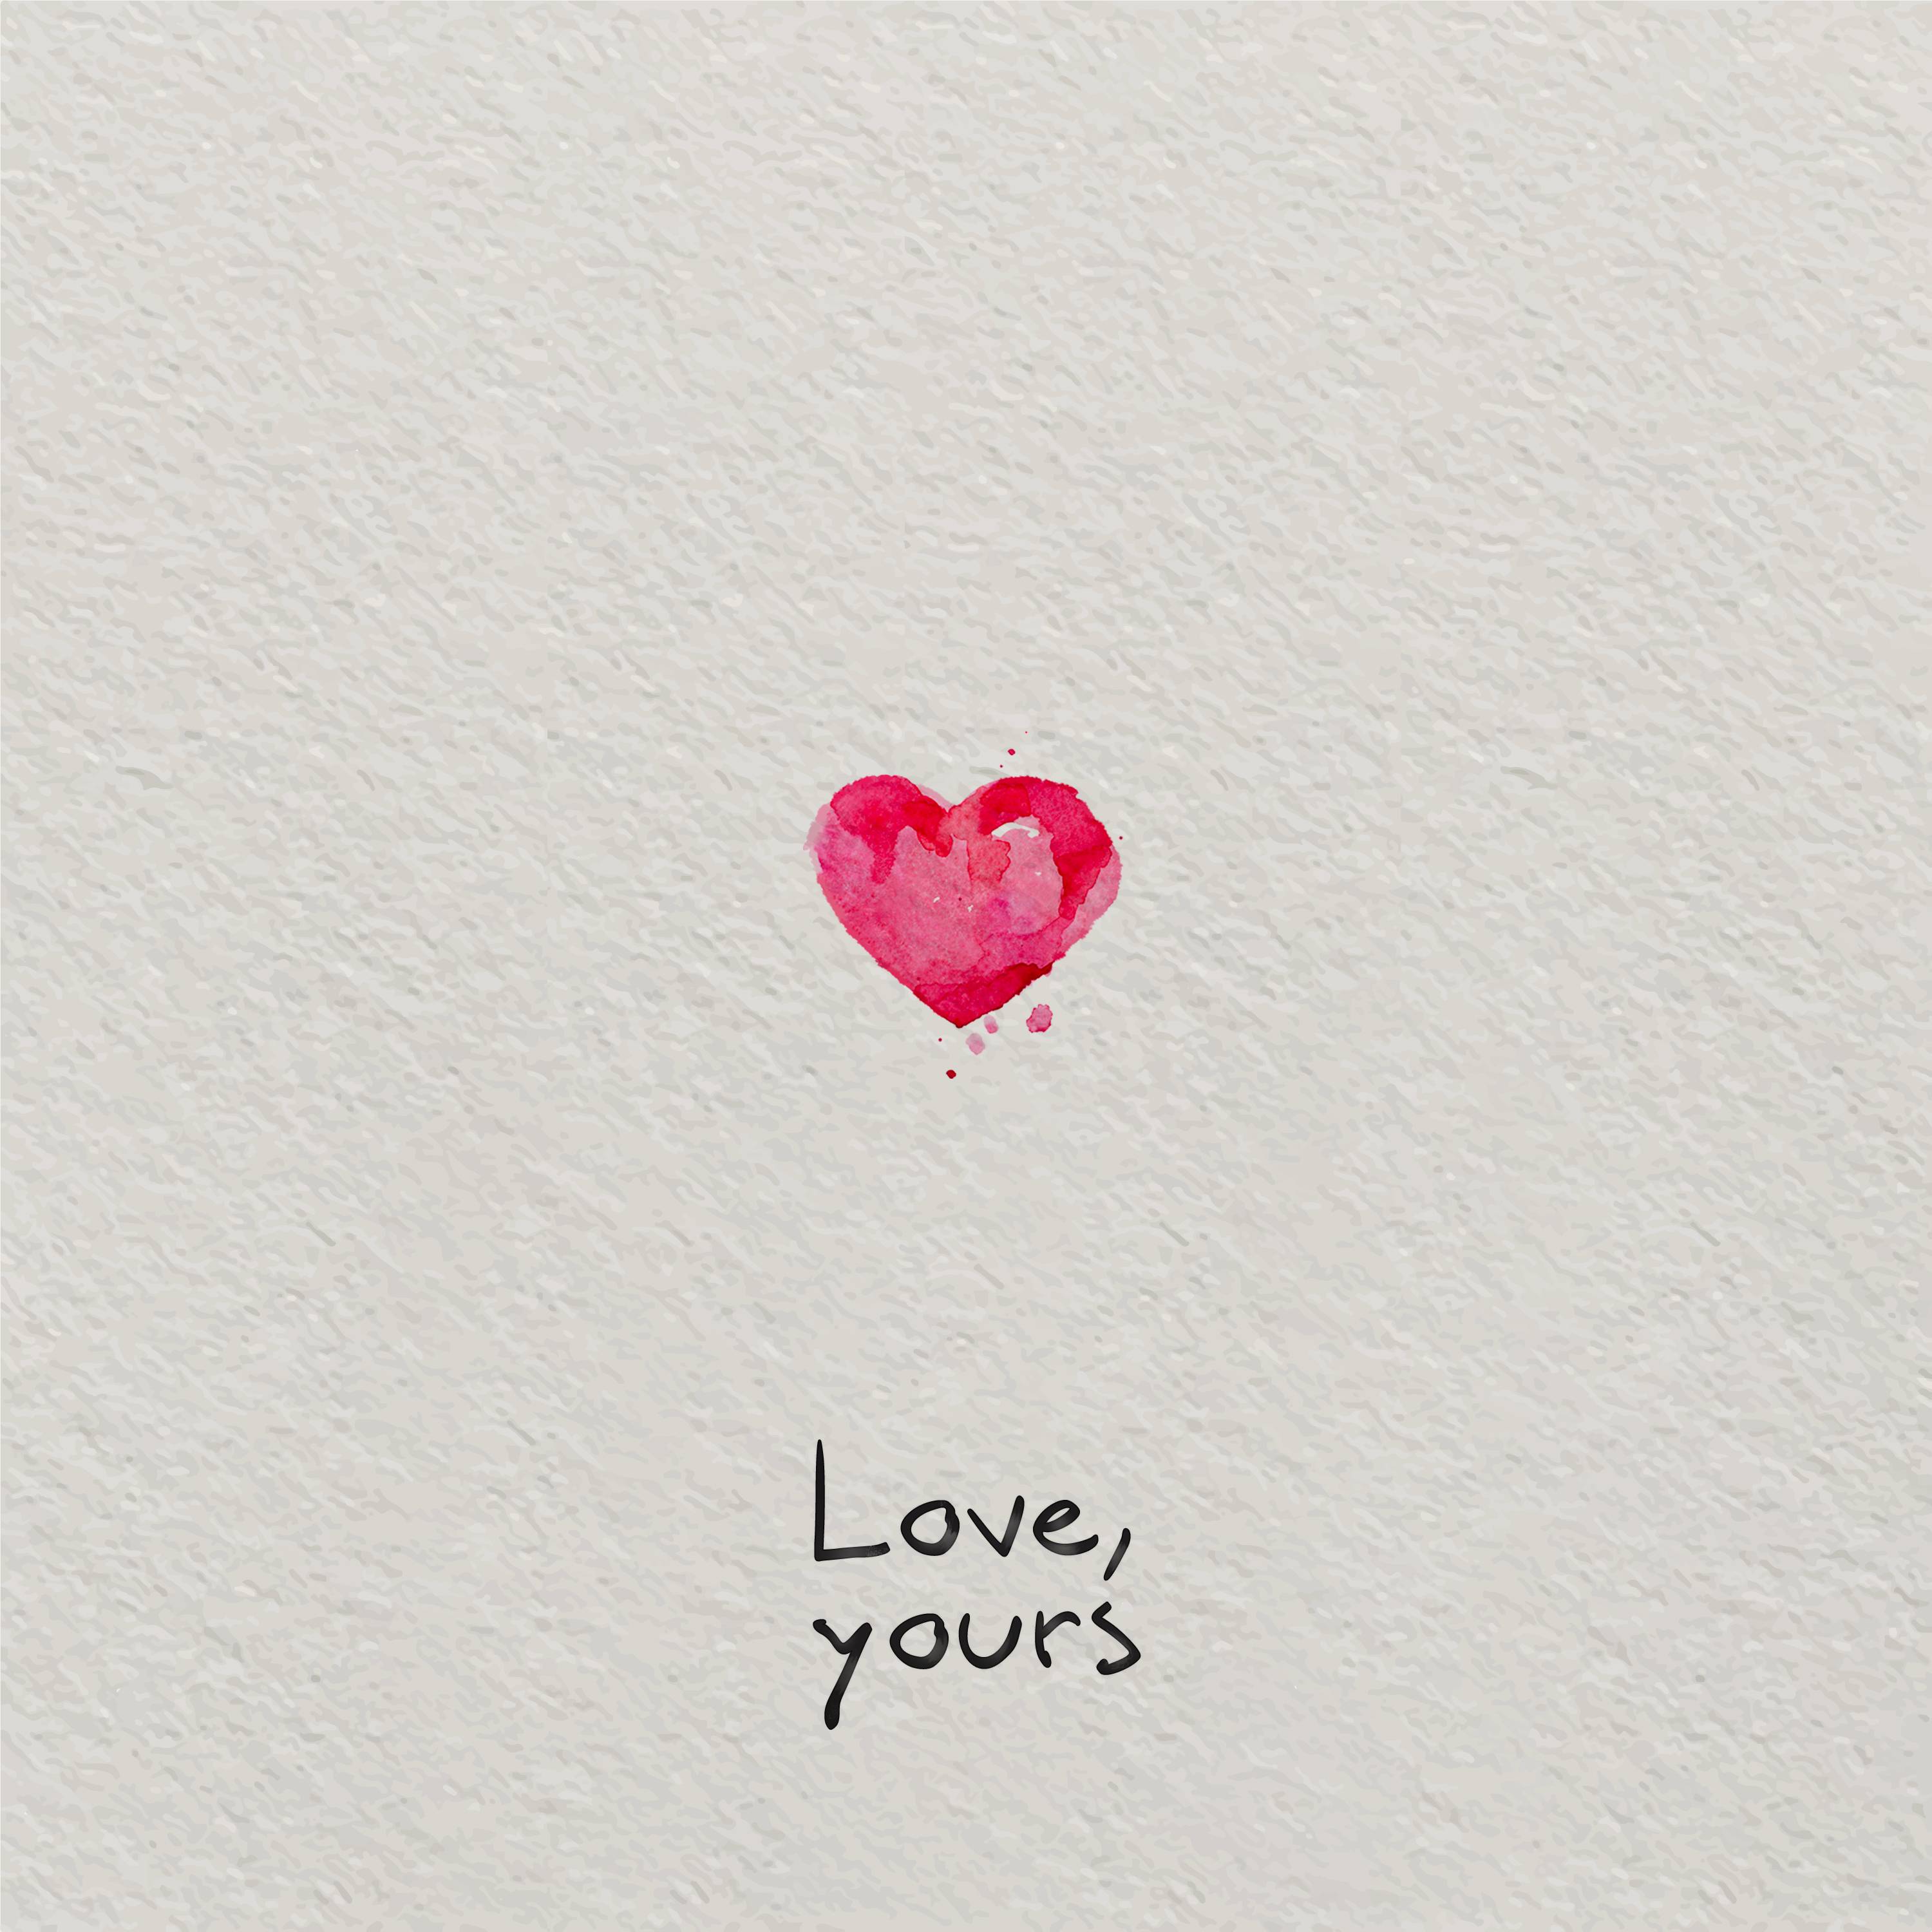 Love,
yours